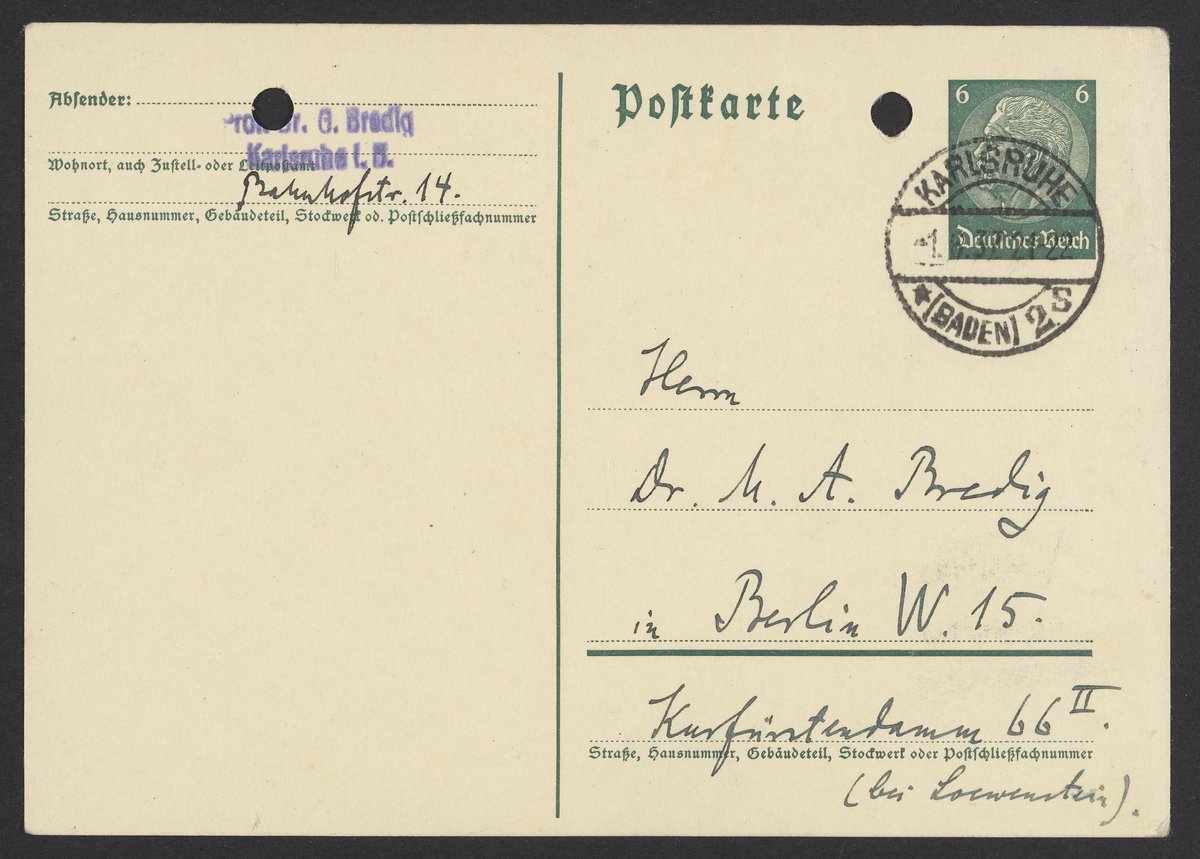 Absender:
Prof. Dr. G. Bredig
Karlsruhe i. B.
Wohnort, auch Zustell- oder Leitpostamt
Bahnhofstr. 14.
Straße, Hausnummer, Gebäudeteil, Stockwerk od. Postschließfachnummer
Postkarte
6 6
Deutsches Reich
KARLSRUHE
21-22
★ (BADEN) 2 S
Herrn
Dr. M. A. Bredig
in Berlin W. 15.
Kurfürstendamm 66 II.
Straße, Hausnummer, Gebäudeteil, Stockwerk oder Postschließfachnummer
(bei Loewenstein).